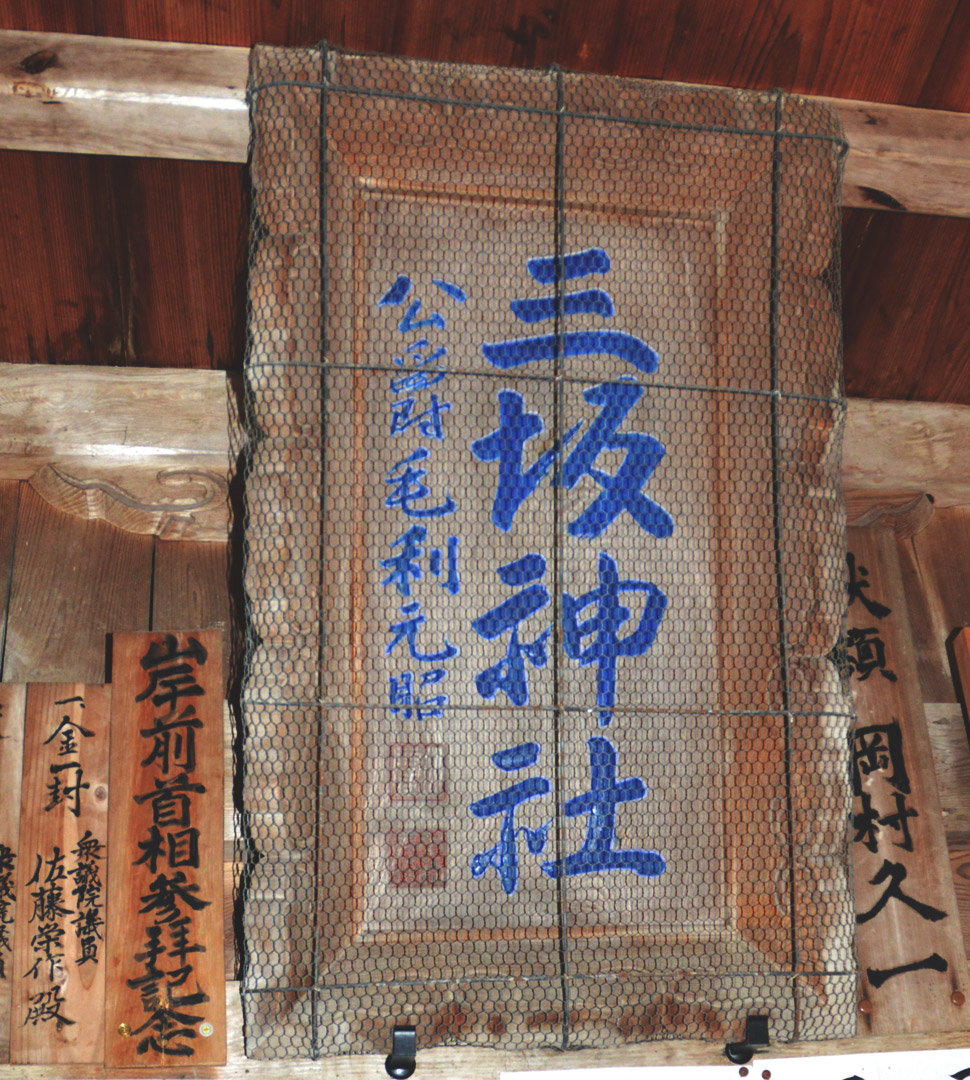 三坂神社
公爵毛利元昭
岡村久一
岸前首相参拝記念
一金一封
衆議院議員
佐藤栄作殿